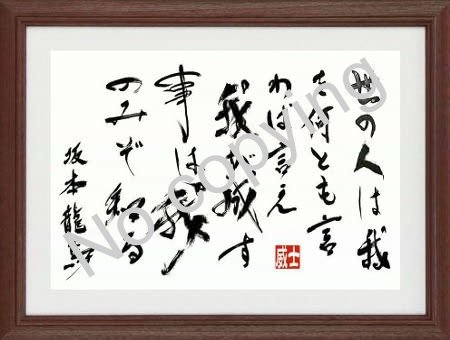 世の人は我
を何とも言
わば言え
我が成す
事は我
のみぞ知る
坂本龍馬
威士
No copying